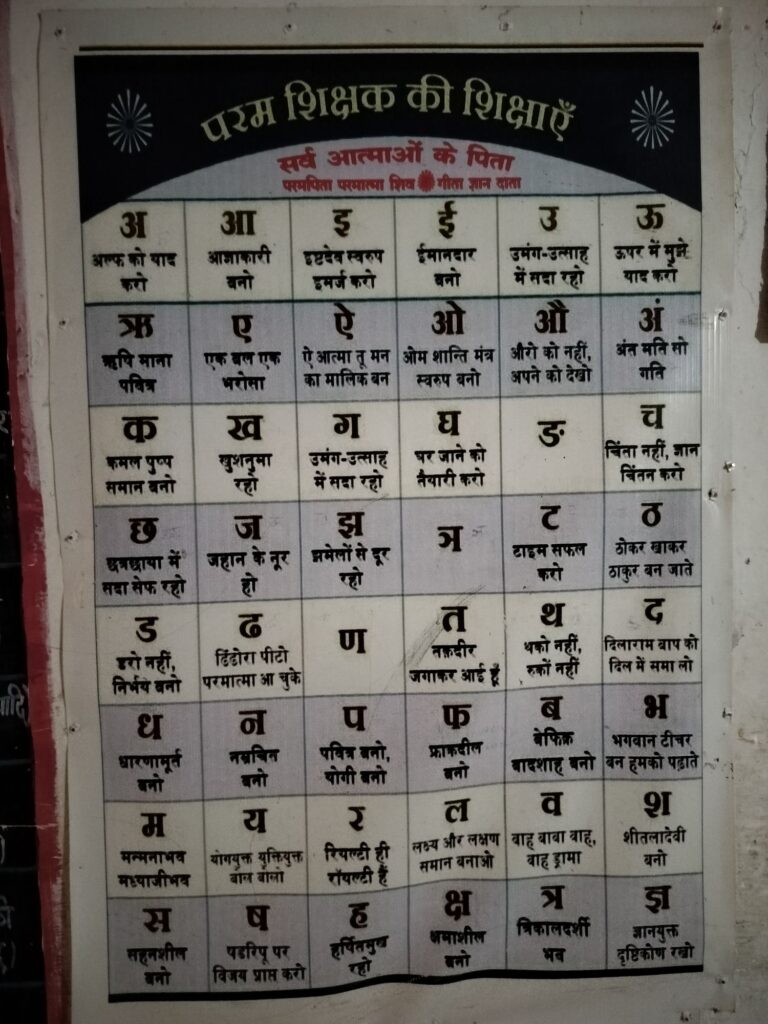 परम शिक्षक की शिक्षाएँ
सर्व आत्माओं के पिता
परमपिता परमात्मा शिव गीता ज्ञान दाता
अ आ इ ई उ ऊ
अल्फ को याद आज्ञाकारी इष्टदेव स्वरुप ईमानदार उमंग-उत्साह ऊपर में मुझे
करो बनो इमर्ज करो बनो में सदा रहो याद करो
ऋ ए ऐ ओ औ अं
ऋषि माना एक बल एक ऐ आत्मा तू मन ओम शान्ति मंत्र औरो को नहीं, अंत मति सो
पवित्र भरोसा का मालिक बन स्वरुप बनो अपने को देखो गति
क ख ग घ ङ च
कमल पुष्प खुशनुमा उमंग-उत्साह घर जाने को चिंता नहीं, ज्ञान
समान बनो रहो में सदा रहो तैयारी करो चिंतन करो
छ ज झ ञ ट ठ
छत्रछाया में जहान के नूर झमेलों से दूर टाइम सफल ठोकर खाकर
सदा सेफ रहो हो रहो करो ठाकुर बन जाते
ड ढ ण त थ द
डरो नहीं, ढिंढोरा पीटो तक़दीर थको नहीं, दिलाराम बाप को
निर्भय बनो परमात्मा आ चुके जगाकर आई हूँ रुकों नहीं दिल में समा लो
ध न प फ ब भ
धारणामूर्त नम्रचित पवित्र बनो, फ्राकदील बेफिक्र भगवान टीचर
बनो बनो योगी बनो बनो बादशाह बनो बन हमको पढ़ाते
म य र ल व श
मन्मनाभव योगयुक्त युक्तियुक्त रियल्टी ही लक्ष्य और लक्षण वाह बाबा वाह, शीतलादेवी
मध्याजीभव बोल बोलो रॉयल्टी हैं समान बनाओ वाह ड्रामा बनो
स ष ह क्ष त्र ज्ञ
सहनशील षडरिपू पर हर्षितमुख क्षमाशील त्रिकालदर्शी ज्ञानयुक्त
बनो विजय प्राप्त करो रहो बनो भव दृष्टिकोण रखो